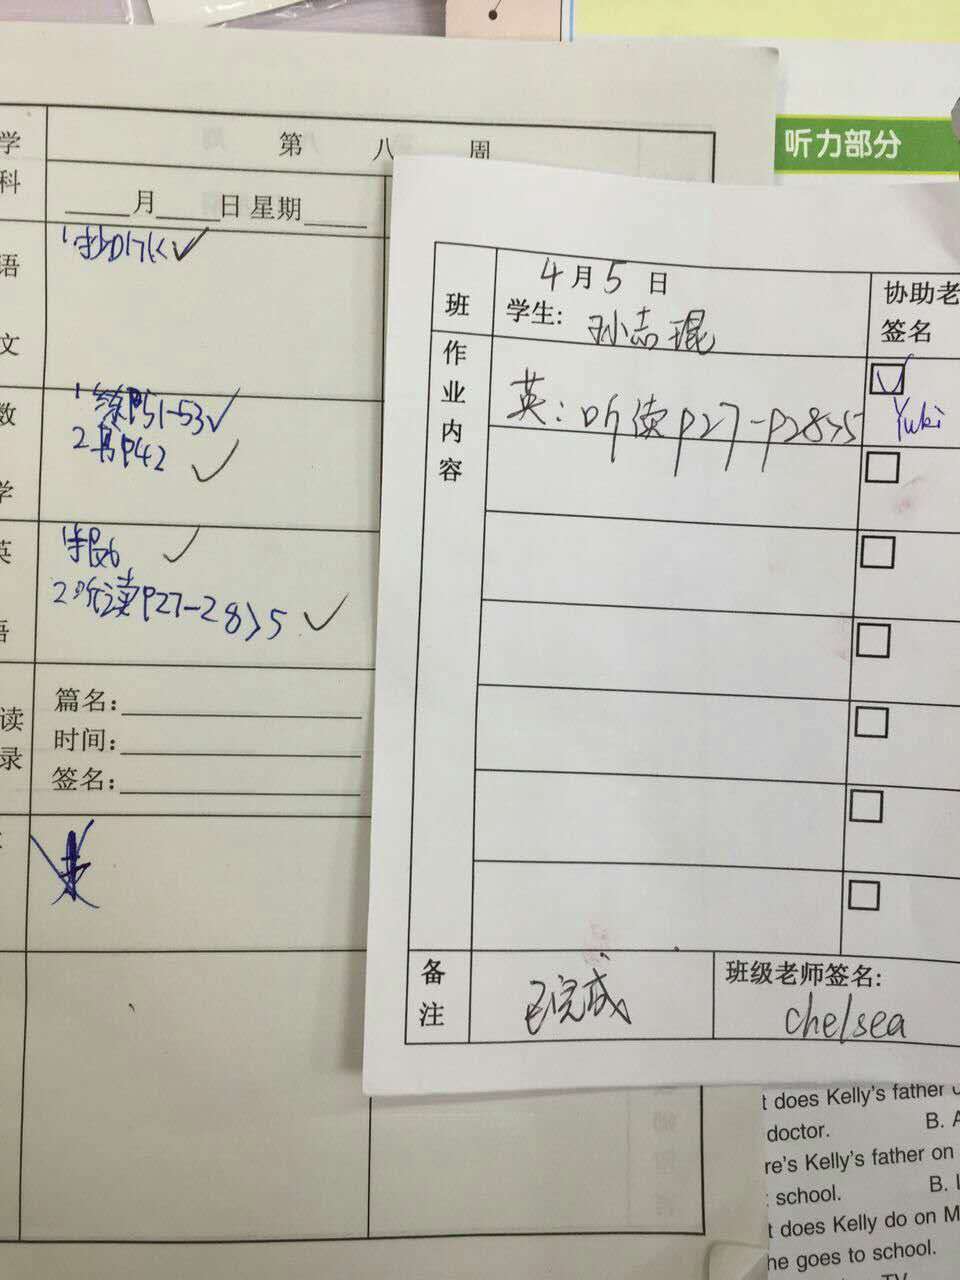 听力部分
学科
第 八 周
月 日 星期
语文
1抄D17K
数学
1练P51-53
2书P42
英语
1报b
2听读P27-28>5
读录
篇名:
时间:
签名:
班
4月5日
学生: 孙志琨
协助老
签名
作业内容
英: 听读P27-P28>5
Yuki
备注
已完成
班级老师签名:
Chelsea
t does Kelly's father
doctor. B. A
re's Kelly's father on
school. B. I
t does Kelly do on M
he goes to school.
TV